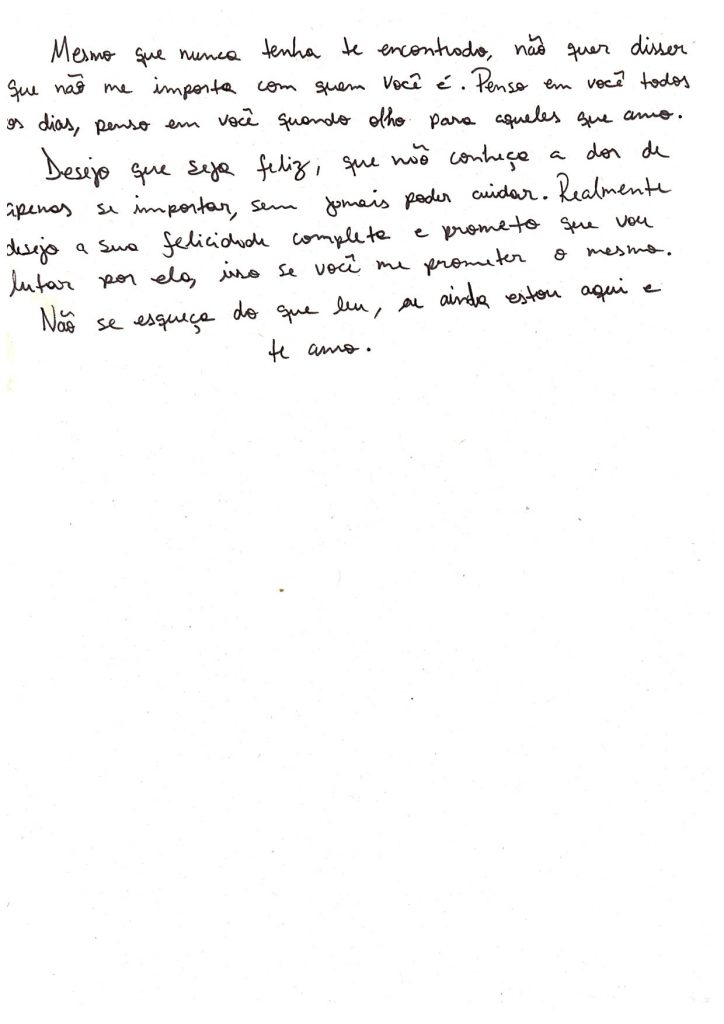 Mesmo que nunca tenha te encontrado, não quer disser
que não me importa com quem você é. Penso em você todos
os dias, penso em você quando olho para aqueles que amo.
Desejo que seja feliz, que não conheça a dor de
apenas se importar, sem jamais poder cuidar. Realmente
desejo a sua felicidade completa e prometo que vou
lutar por ela, isso se você me prometer o mesmo.
Não se esqueça do que leu, eu ainda estou aqui e
te amo.